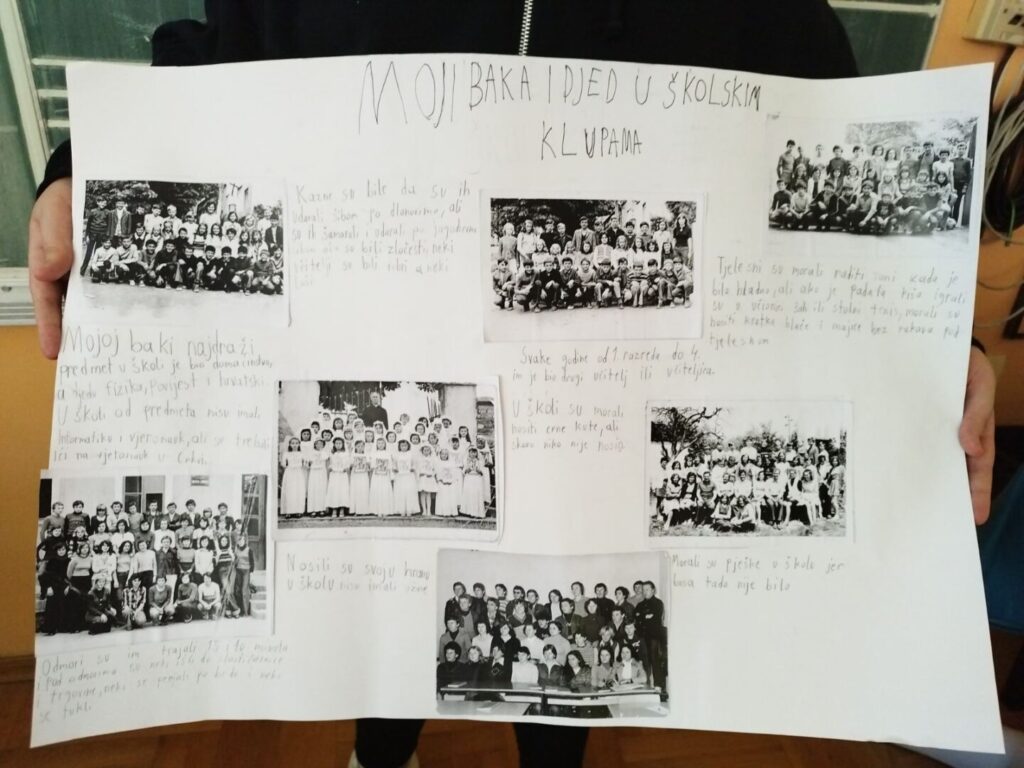 MOJI BAKA I DJED U ŠKOLSKIM
KLUPAMA
Kazne su bile da su ih
udarali šibom po dlanovima, ali
su ih šamarali i udarali po jagodicama
ako su bili zločesti, neki
učitelji su bili dobri a neki
loši
Mojoj baki najdraži
predmet u školi je bio domaćinstvo,
a djedu fizika, povijest i hrvatski.
U školi od predmeta nisu imali
Informatiku i vjeronauk, ali su trebali
ići na vjeronauk u Crkvi.
Odmori su im trajali 15 i 10 minuta
i pod odmorima su neki išli do slastičarnice
i trgovine, neki se penjali po brdu i neki
se tukli
Nosili su svoju hranu
u školu nisu imali užne
Svake godine od 1. razreda do 4.
im je bio drugi učitelj ili učiteljica.
U školi su morali
nositi crne kute, ali
skoro niko nije nosio
Tjelesni su morali raditi vani kada je
bilo hladno, ali ako je padala kiša igrali
su u učionici šah ili stolni tenis, morali su
nositi kratke hlače i majice bez rukava pod
tjelesnom
Morali su pješke u školu jer
busa tada nije bilo